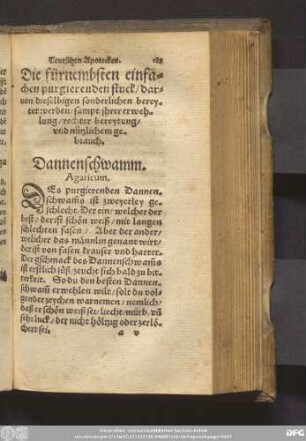 Teutschen Apotecken. 188
Die fürnembsten einfa-
chen purgierenden stuck/ dar-
von dieselbigen sonderlichen berey-
tet werden/ sampt ihrer erweh-
lung/ rechter bereytung/
vnd nützlichem ge-
brauch.
Dannenschwamm.
Agaricum.
DEs purgierenden Dannen-
schwam̃s ist zweyerley ge-
schlecht. Der ein/ welcher der
best/ der ist schön weiß/ mit langen
schlechten fasen/ Aber der ander/
welcher das männlin genant wirt/
der ist von fasen krauser vnd harter.
Der gschmack des Dannenschwam̃s
ist erstlich süß/ zeucht sich bald zu bit-
terkeit. So du den besten Dannen-
schwam̃ erwehlen wilt/ solt du vol-
gender zeychen warnemen/ nemlich/
daß er schön weiß sei/ liecht/ mürb/ vñ
sehr luck/ der nicht höltzig oder zerlö-
chert sei.
a v